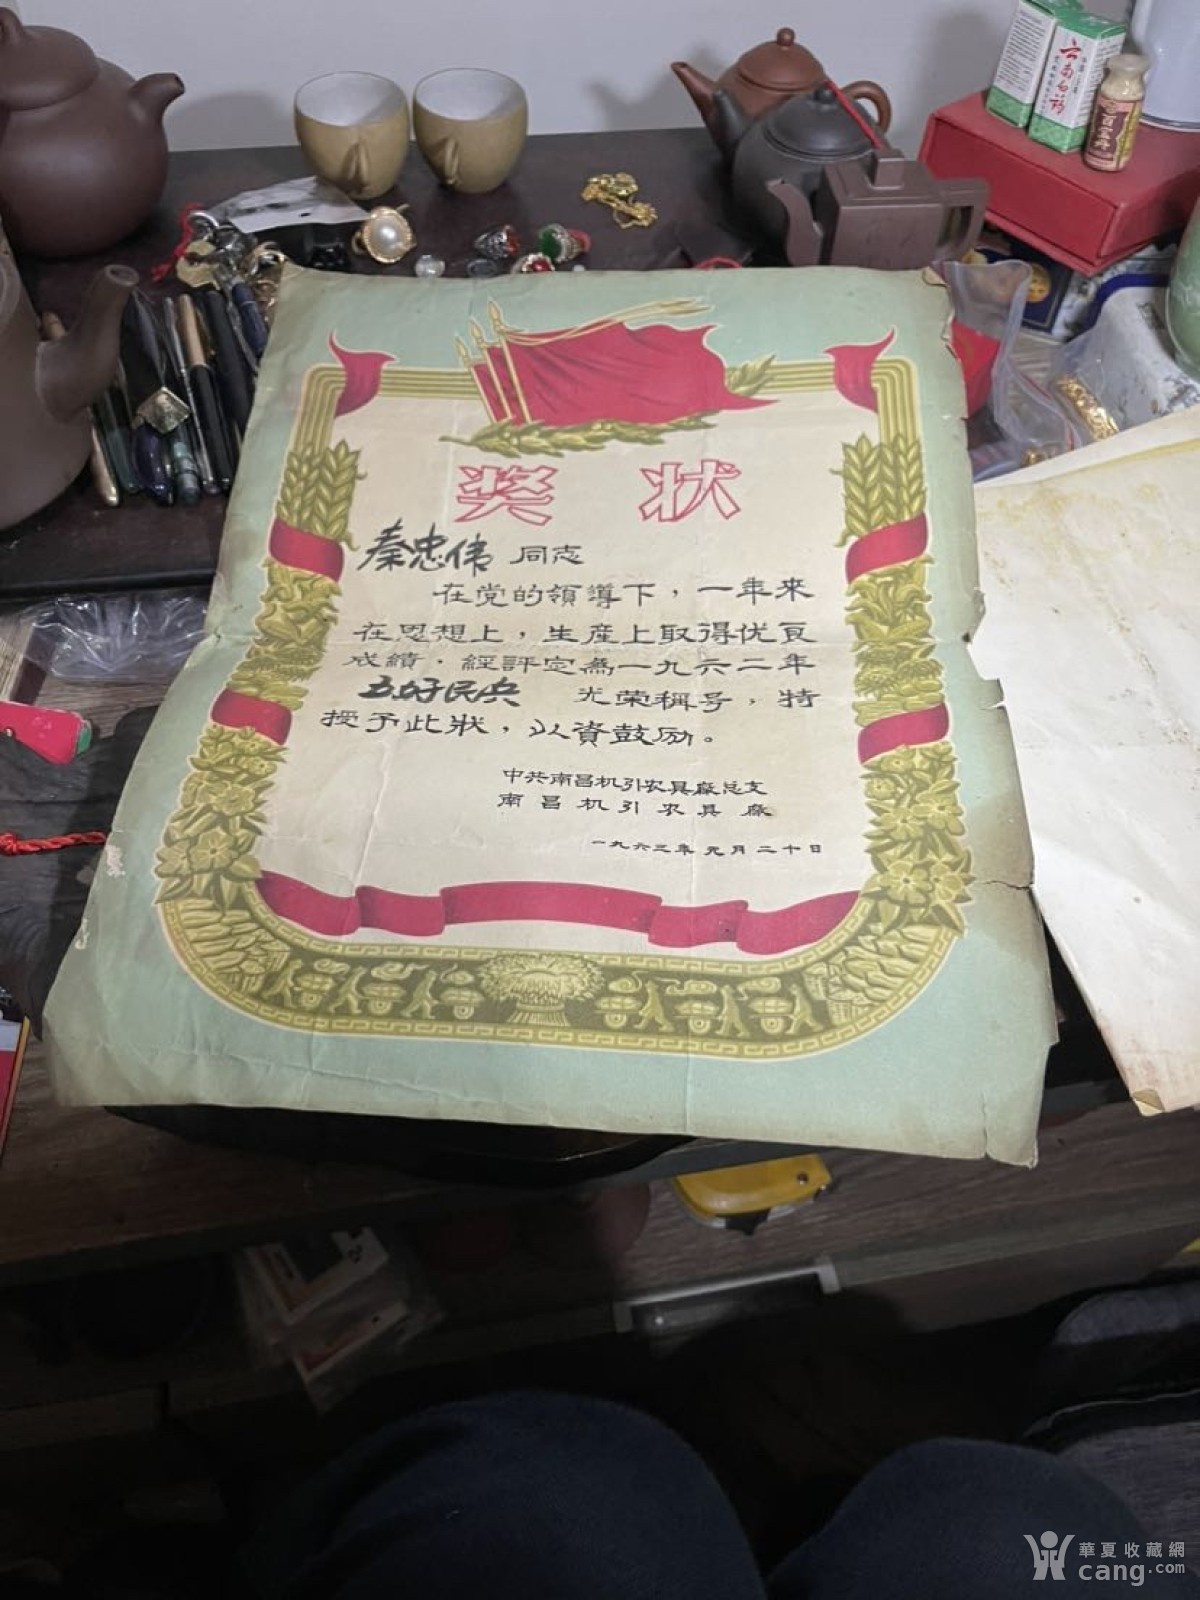 云南白药
百宝丹
奖状
秦忠伟 同志
在党的領導下，一年来
在思想上，生産上取得优良
成績．經評定為一九六二年
五好民兵 光荣稱号，特
授予此狀，以資鼓励。
中共南昌机引农具廠总支
南昌机引农具廠
一九六三年元月二十日
華夏收藏網
cang.com